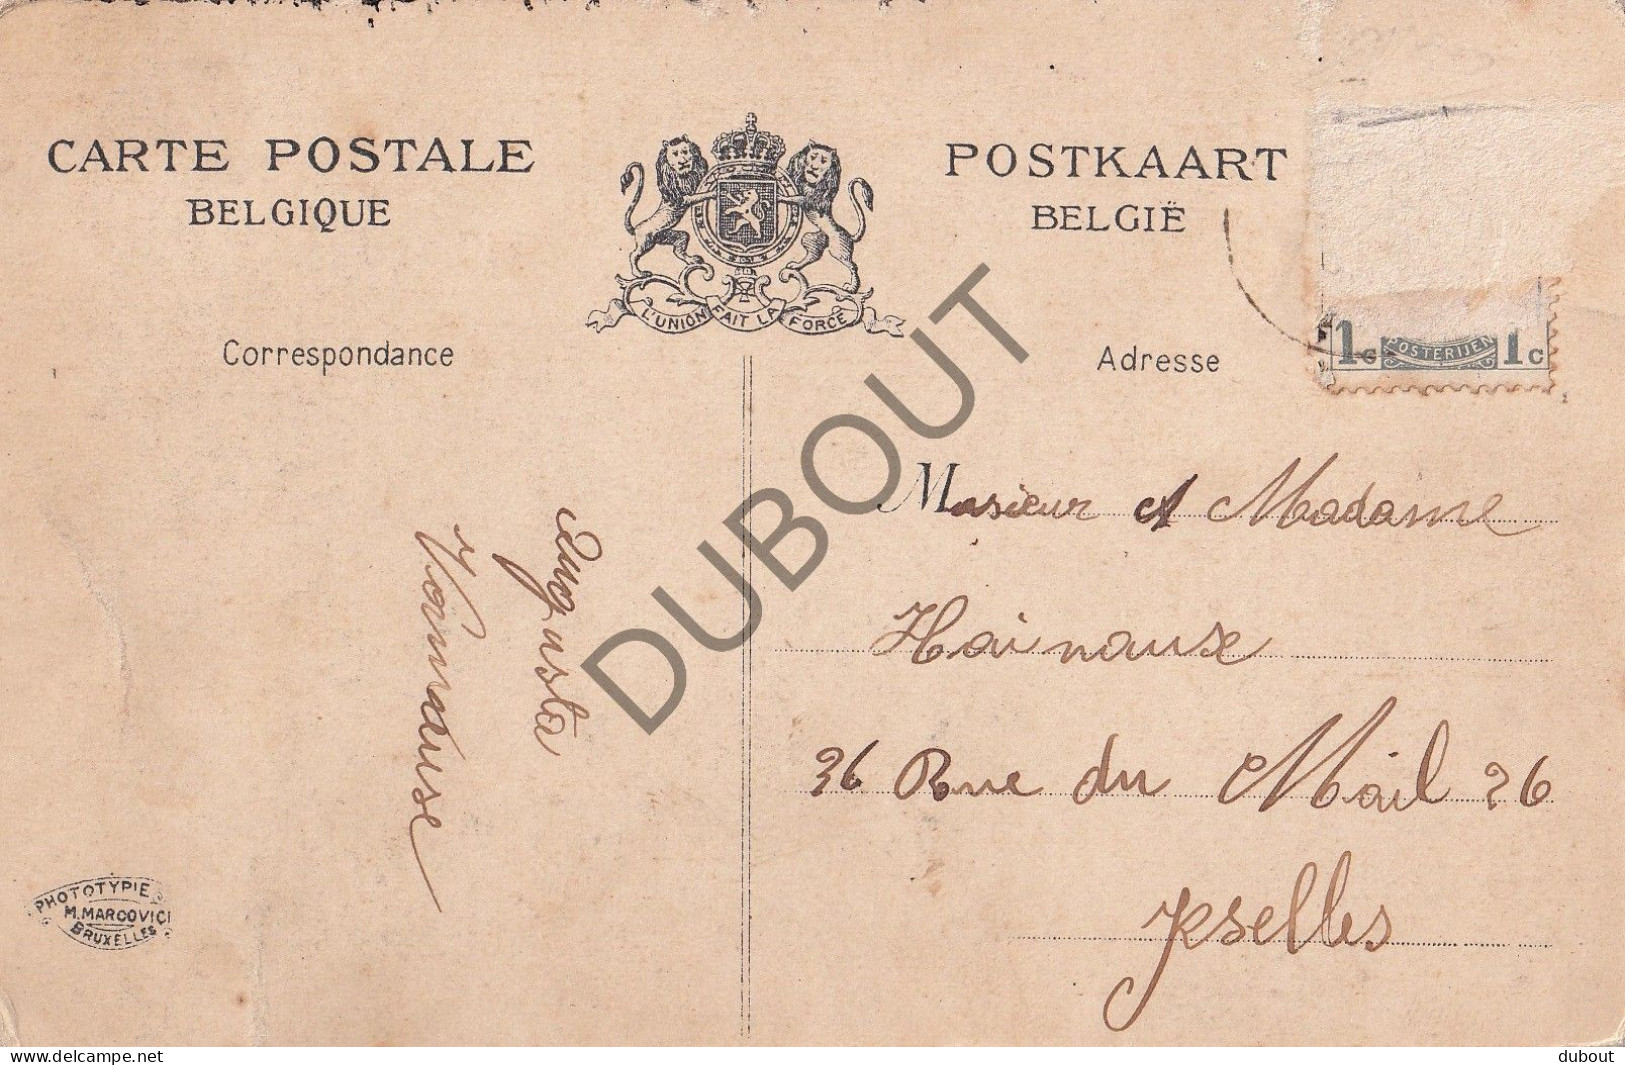 CARTE POSTALE
BELGIQUE
POSTKAART
BELGIË
L'UNION FAIT LA FORCE
Correspondance
Adresse
1c POSTERIJEN 1c
Monsieur et Madame
Hainaux
26 Rue du Mail 26
Ixselles
Augusta
PHOTOTYPIE
M. MARCOVICI
BRUXELLES
DUBOUT
www.delcampe.net
dubout